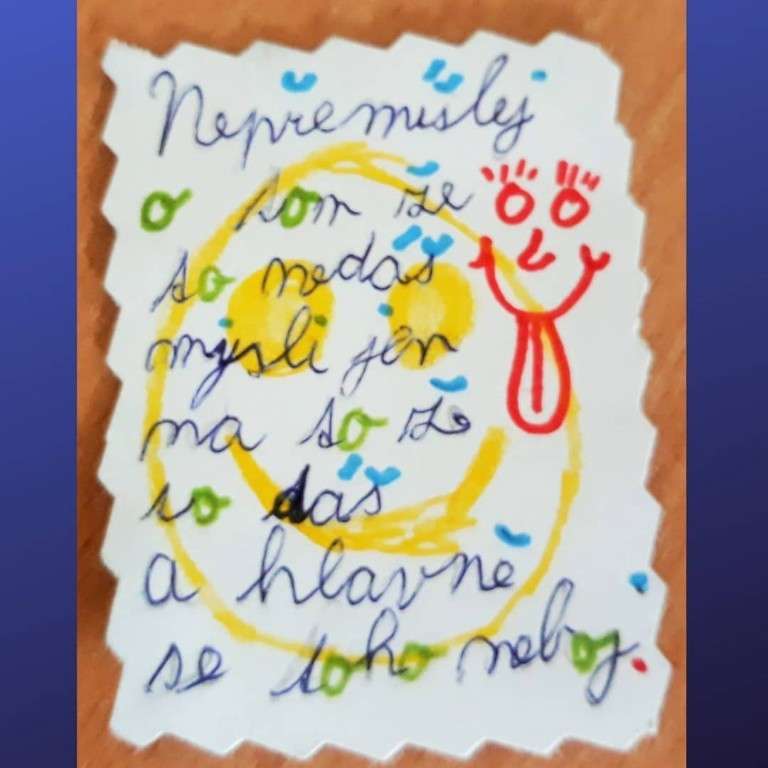 Nepřemíšlej
o tom že
to nedáš
mysli jen
na to že
to dáš
a hlavně
se toho neboj.